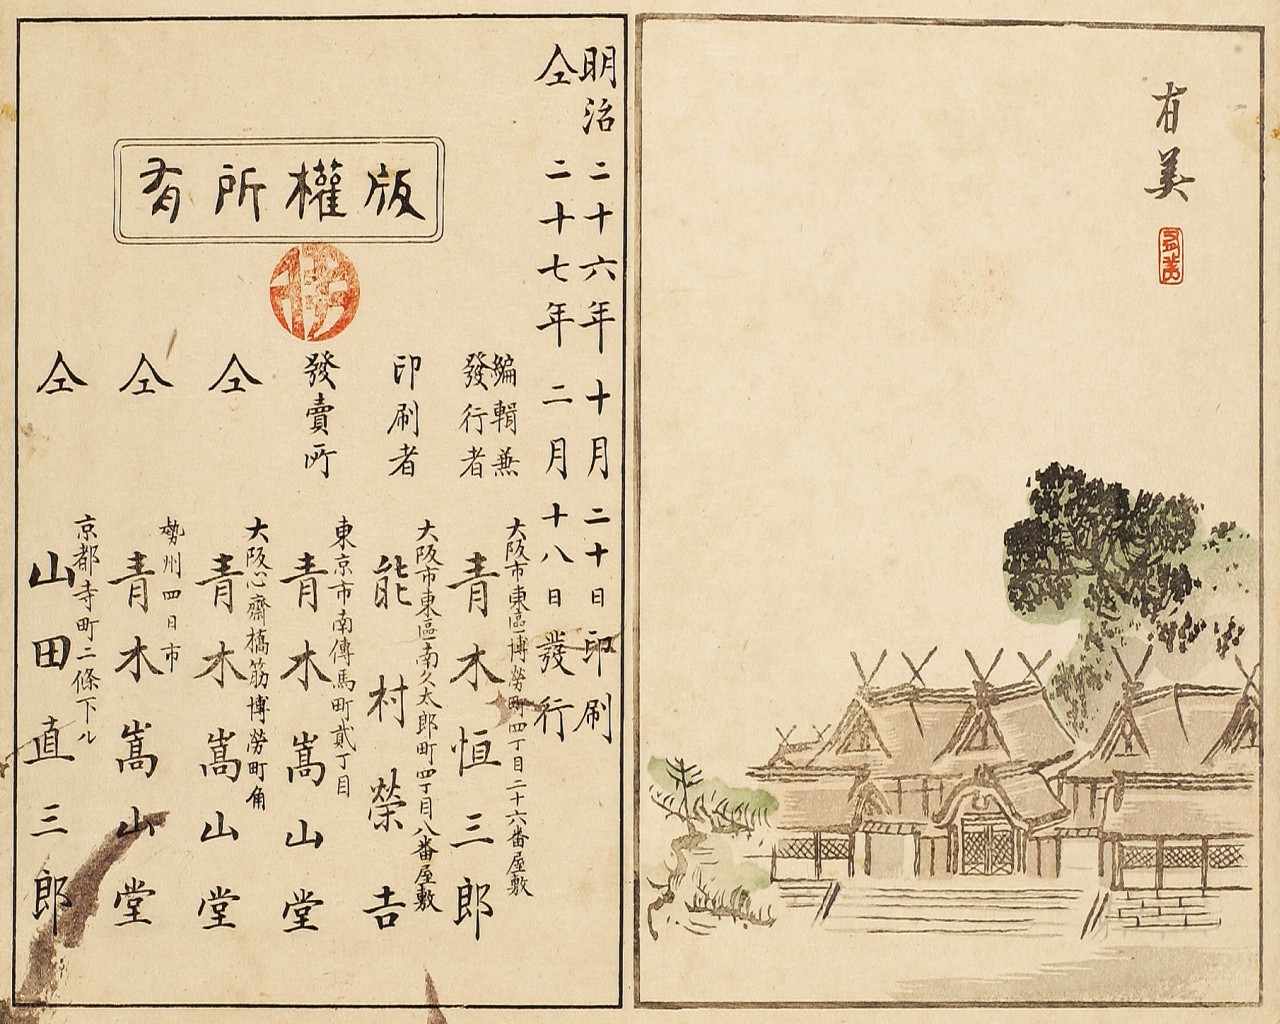 有美
有美
明治二十六年十月二十日印刷
仝二十七年二月十八日發行
版權所有
編輯兼
發行者
大阪市東區博勞町四丁目二十六番屋敷
青木恒三郎
印刷者
大阪市東區南久太郎町四丁目八番屋敷
能村榮吉
發賣所
東京市南傳馬町貳丁目
青木嵩山堂
仝
大阪心齋橋筋博勞町角
青木嵩山堂
仝
勢州四日市
青木嵩山堂
仝
京都寺町二條下ル
山田直三郎